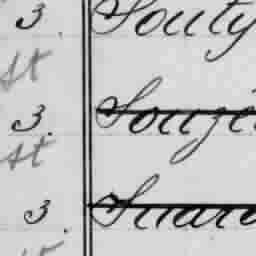 3. Souty
st
3. Souze
st
3. Suare
st